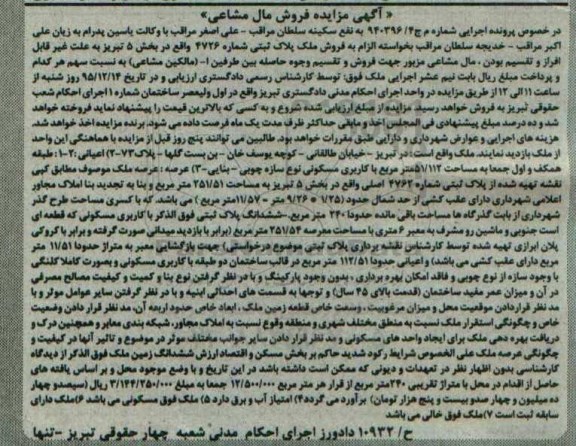 « آگهی مزایده فروش مال مشاعی»
در خصوص پرونده اجرایی شماره م ج۹۴۰۳۹۶/۴ به نفع سکینه سلطان مراقب - علی اصغر مراقب با وکالت یاسین پدرام به زیان علی
اکبر مراقب - خدیجه سلطان مراقب بخواسته الزام به فروش ملک پلاک ثبتی شماره ۴۷۲۶ واقع در بخش ۵ تبریز به علت غیر قابل
افراز و تقسیم بودن ، مال مشاعی مزبور جهت فروش و تقسیم وجوه حاصله بین طرفین ۱- (مالکین مشاعی) به نسبت سهم هر کدام
و پرداخت مبلغ ریال بابت نیم عشر اجرایی ملک فوق: توسط کارشناس رسمی دادگستری ارزیابی و در تاریخ ۹۵/۱۲/۱۴ روز شنبه از
ساعت ۱۱ الی ۱۲ از طریق مزایده در واحد اجرای احکام مدنی دادگستری تبریز واقع در اول ولیعصر ساختمان شماره ۱ اجرای احکام شعب
حقوقی تبریز به فروش خواهد رسید. مزایده از مبلغ ارزیابی شده شروع و به کسی که بالاترین قیمت را پیشنهاد نماید فروخته خواهد
شد و ده درصد مبلغ پیشنهادی فی المجلس اخذ و مابقی حداکثر ظرف مدت یک ماه فرصت داده می شود. برنده مزایده اخذ خواهد شد.
هزینه های اجرایی و عوارض شهرداری و دارایی طبق مقررات خواهد بود. طالبین می توانند پنج روز قبل از مزایده با هماهنگی این واحد
از ملک بازدید نمایند. ملک واقع است: در تبریز - خیابان طالقانی - کوچه یوسف خان - بن بست گلها - پلاک ۷۳-۳) اعیانی :۲-۱ : طبقه
همکف و اول جمعا به مساحت ۵۱/۱۱۲ متر مربع با کاربری مسکونی نوع سازه چوبی - بنایی-۳) عرصه: عرصه ملک موصوف مطابق کپی
نقشه تهیه شده از پلاک ثبتی شماره ۴۷۶۲ اصلی واقع در بخش ۵ تبریز به مساحت ۲۵۱/۵۱ متر مربع و بنا به تجدید بنا املاک مجاور
اعلامی شهرداری دارای عقب کشی از حد شمال حدود (۱/۲۵ * ۹/۲۶ متر - ۱۱/۵۷ متر مربع ) می باشد، که با کسری مساحت طرح گذر
شهرداری از بابت گذرگاه ها مساحت باقی مانده حدودا ۲۴۰ متر مربع.-ششدانگ پلاک ثبتی فوق الذکر با کاربری مسکونی که قطعه ای
است جنوبی و ماشین رو مشرف به معبر ۶ متری با مساحت معرصه ۲۵۱/۵۴ متر مربع (برابر با بازدید میدانی صورت گرفته و برابر با کروکی
پلان ابرازی تهیه شده توسط کارشناس نقشه برداری پلاک ثبتی موضوع درخواستی ، جهت بازگشایی معبر به متراژ حدودا ۱۱/۵۱ متر
مربع دارای عقب کشی می باشد) و اعیانی حدودا ۱۱۲/۵۱ متر مربع در قالب ساختمان دو طبقه با کاربری مسکونی و بصورت کاملا کلنگی
با وجود سازه از نوع چوبی و فاقد امکان بهره برداری ، بدون وجود پارکینگ و با در نظر گرفتن نوع بنا و کمیت و کیفیت مصالح مصرفی
در آن و میزان عمر مفید ساختمان (قدمت بالای ۴۵ سال) و توجها به قسمت های احداثی ابنیه و با در نظر گرفتن سایر عوامل موثر و با
مد نظر قراردادن موقعیت محل و میزان مرغوبیت ، وسعت خاص قطعه زمین ملک ، ابعاد خاص حدود اربعه آن، مد نظر قرار دادن وضعیت
خاص و چگونگی استقرار ملک نسبت به مناطق مختلف شهری و منطقه وقوع نسبت به املاک مجاور، شبکه بندی معابر و همچنین درک و
دریافت بهره دهی ملک برای ایجاد واحد های مسکونی و مد نظر قرار دادن سایر جوانب مختلف موثر در موضوع و تاثیر آنها در کیفیت و
چگونگی عرصه ملک علی الخصوص شرایط رکود شدید حاکم بر بخش مسکن و اقتصاد ارزش ششدانگ زمین ملک فوق الذکر از دیدگاه
کارشناسی بدون اظهار نظر در تعهدات و دیونی که ممکن است داشته باشد در این تاریخ و با وضع موجود محل و بر اساس یافته های
حاصل از اقدام در محل با متراژ تقریبی ۲۴۰ متر مربع از قرار هر متر مربع ۱۲/۵۰۰/۰۰۰ جمعا به مبلغ ۳/۱۴۴/۲۵۰/۰۰۰ ریال (سیصد و چهار
ده میلیون و چهار صد و بیست و پنج هزار تومان) برآورد می گردد ۴) امتیاز آب و برق دارد ۵) ملک فوق مسکونی می باشد ۶) ملک دارای
سابقه ثبت است ۷) ملک فوق خالی می باشد
ح/ ۱۰۹۳۲ دادورز اجرای احکام مدنی شعبه چهار حقوقی تبریز -تنها